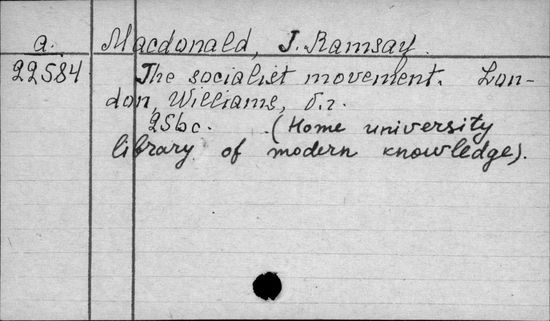 a. Macdonald, J. Ramsay.
22584 The socialist movement. Lon-
don, Williams, б.г.
256с. (Home university
library of modern knowledge).